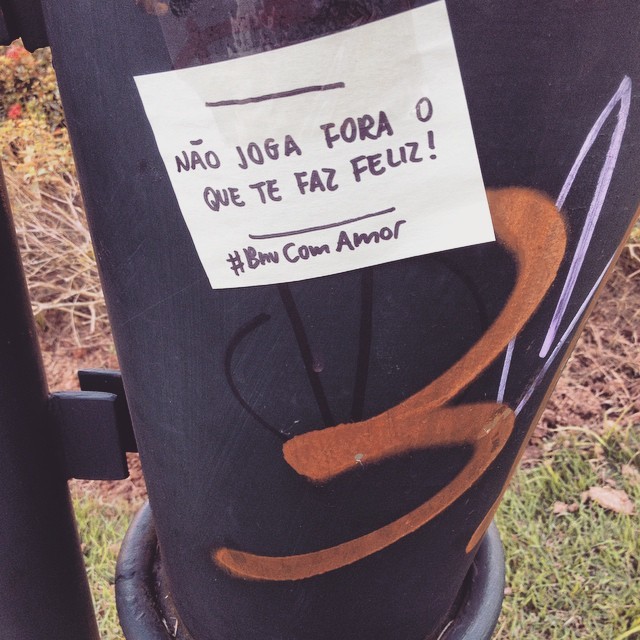 NÃO JOGA FORA O
QUE TE FAZ FELIZ!
#Bnv Com Amor